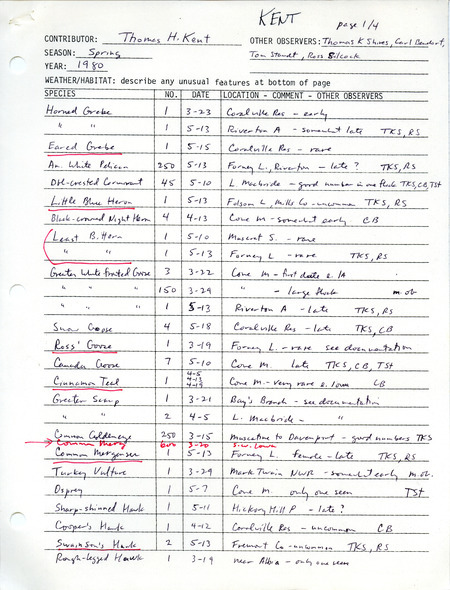 KENT
page 1/4
CONTRIBUTOR: Thomas H. Kent OTHER OBSERVERS: Thomas K Shires, Carl Bendorf,
SEASON: Spring Tom Staudt, Ross Silcock
YEAR: 1980
WEATHER/HABITAT: describe any unusual features at bottom of page
SPECIES NO. DATE LOCATION - COMMENT - OTHER OBSERVERS
Horned Grebe 1 3-23 Coralville Res - early
" " 1 5-13 Riverton A - somewhat late TKS, RS
Eared Grebe 1 5-15 Coralville Res - rare
Am. White Pelican 250 5-13 Forney L, Riverton - late? TKS, RS
Dbl-crested Cormorant 45 5-10 L Macbride - good number in one flock TKS, CB, TSt
Little Blue Heron 1 5-13 Folsom L, Mills Co - uncommon TKS, RS
Black-crowned Night Heron 4 4-13 Cone M - somewhat early CB
Least B. Hern 1 5-10 Muscat S. - rare
" " 1 5-13 Forney L - rare TKS, RS
Greater White fronted Goose 3 3-22 Cone M - first date e. IA
" " " 150 3-29 " - large flock m.ob
" " " 1 5-13 Riverton A - late TKS, RS
Snow Goose 4 5-18 Coralville Res - late TKS, CB
Ross' Goose 1 3-19 Forney L. - rare see documentation
Canada Goose 7 5-10 Cone M. late TKS, CB, TSt
Cinnamon Teal 1 4-5 4-13 4-19 Cone M. - very rare e. Iowa CB
Greater Scaup 1 3-21 Bay's Branch - see documentation
" " 2 4-5 L. Macbride - "
Common Goldeneye 250 3-15 Muscatine to Davenport - good numbers TKS
Common Merg 600 3-20 S.W. Iowa
Common Merganser 1 5-13 Forney L. female - late TKS, RS
Turkey Vulture 1 3-29 Mark Twain NWR - somewhat early m.ob.
Osprey 1 5-7 Cone M. only one seen TSt
Sharp-shinned Hawk 1 5-11 Hickory Hill P - late?
Cooper's Hawk 1 4-12 Coralville Res - uncommon CB
Swainson's Hawk 2 5-13 Fremont Co - uncommon TKS, RS
Rough-legged Hawk 1 3-19 near Albia - only one seen